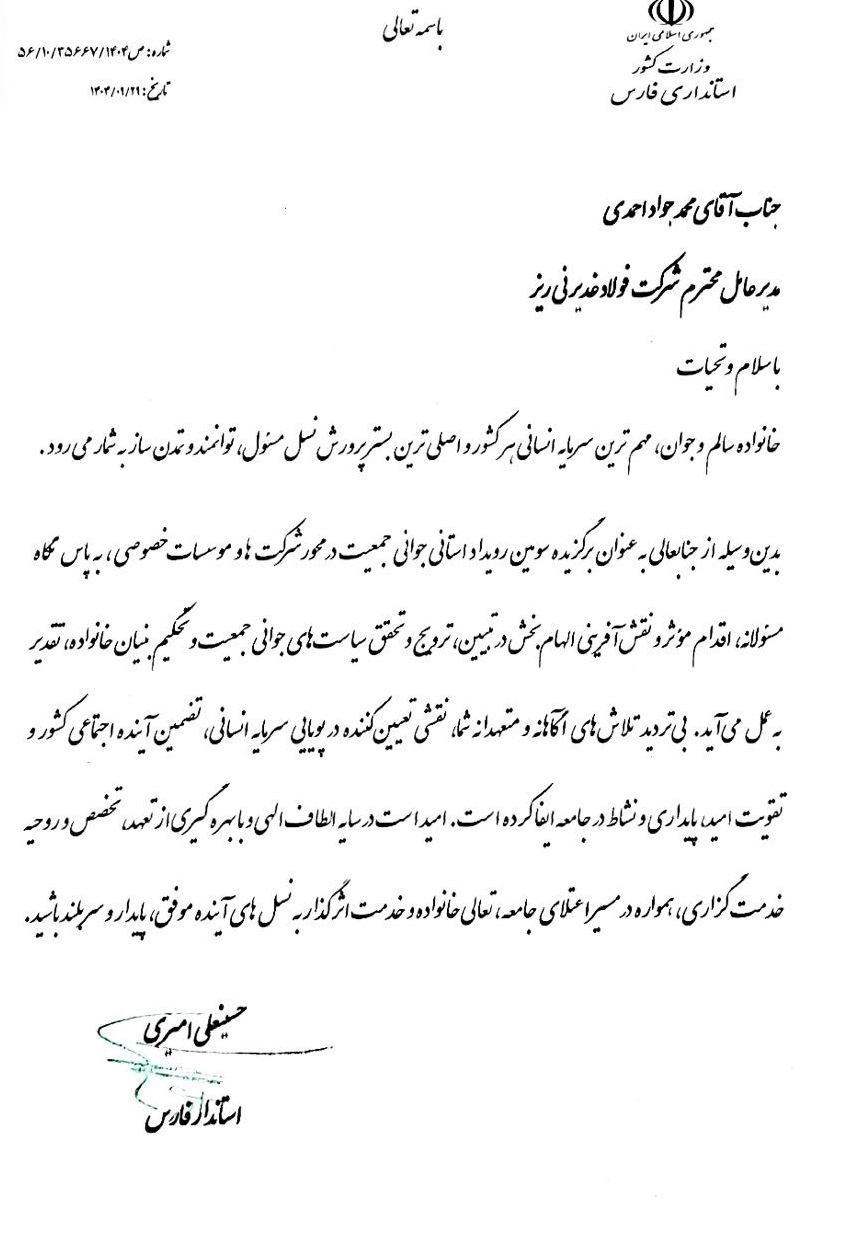 باسمه تعالی
جمهوری اسلامی ایران
وزارت کشور
استانداری فارس
شماره: ص/۵۶/۱۰/۳۵۶۶۷/۱۴۰۴
تاریخ: ۱۴۰۴/۰۹/۲۹
جناب آقای محمد جواد احمدی
مدیر عامل محترم شرکت فولاد غدیر نی ریز
با سلام و تحیات
خانواده سالم و جوان، مهم ترین سرمایه انسانی هر کشور و اصلی ترین بستر پرورش نسل مسئول، توانمند و تمدن ساز به شمار می رود.
بدین وسیله از جنابعالی به عنوان برگزیده سومین رویداد استانی جوانی جمعیت در محور شرکت ها و موسسات خصوصی، به پاس نگاه
مسئولانه، اقدام مؤثر و نقش آفرینی الهام بخش در تبیین، ترویج و تحقق سیاست های جوانی جمعیت و تحکیم بنیان خانواده، تقدیر
به عمل می آید. بی تردید تلاش های آگاهانه و متعهدانه شما، نقشی تعیین کننده در پویایی سرمایه انسانی، تضمین آینده اجتماعی کشور و
تقویت امید، پایداری و نشاط در جامعه ایفا کرده است. امید است در سایه الطاف الهی و با بهره گیری از تعهد، تخصص و روحیه
خدمت گزاری، همواره در مسیر اعتلای جامعه، تعالی خانواده و خدمت اثرگذار به نسل های آینده موفق، پایدار و سربلند باشید.
حسینعلی امیری
استاندار فارس